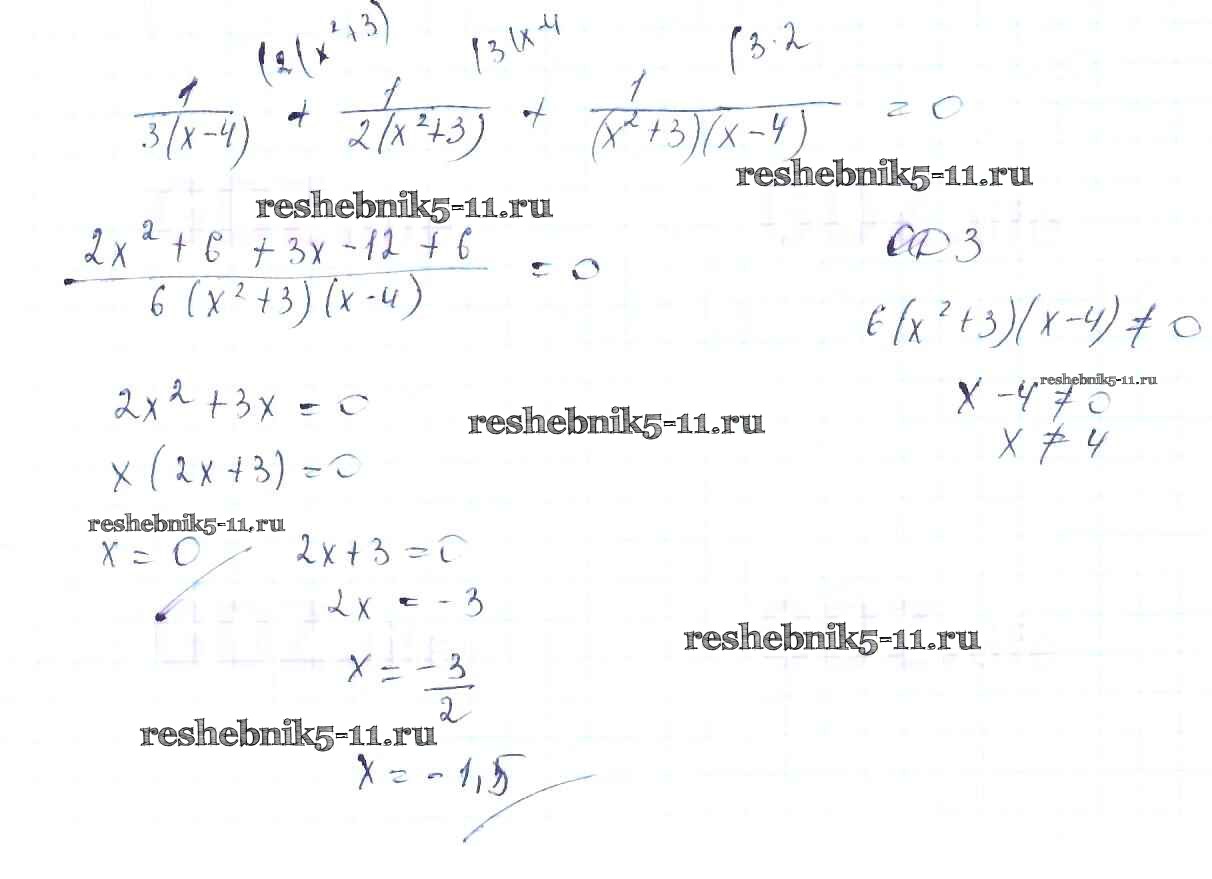 (2(x²+3) (3(x-4 (3·2
1/3(x-4) + 1/2(x²+3) + 1/(x²+3)(x-4) = 0
reshebnik5-11.ru
reshebnik5-11.ru
(2x²+6+3x-12+6)/6(x²+3)(x-4) = 0
ОДЗ
6(x²+3)(x-4)≠0
reshebnik5-11.ru
x-4≠0
2x²+3x=0
reshebnik5-11.ru
x≠4
x(2x+3)=0
reshebnik5-11.ru
x=0 2x+3=0
2x=-3
reshebnik5-11.ru
x=-3/2
reshebnik5-11.ru
x=-1,5